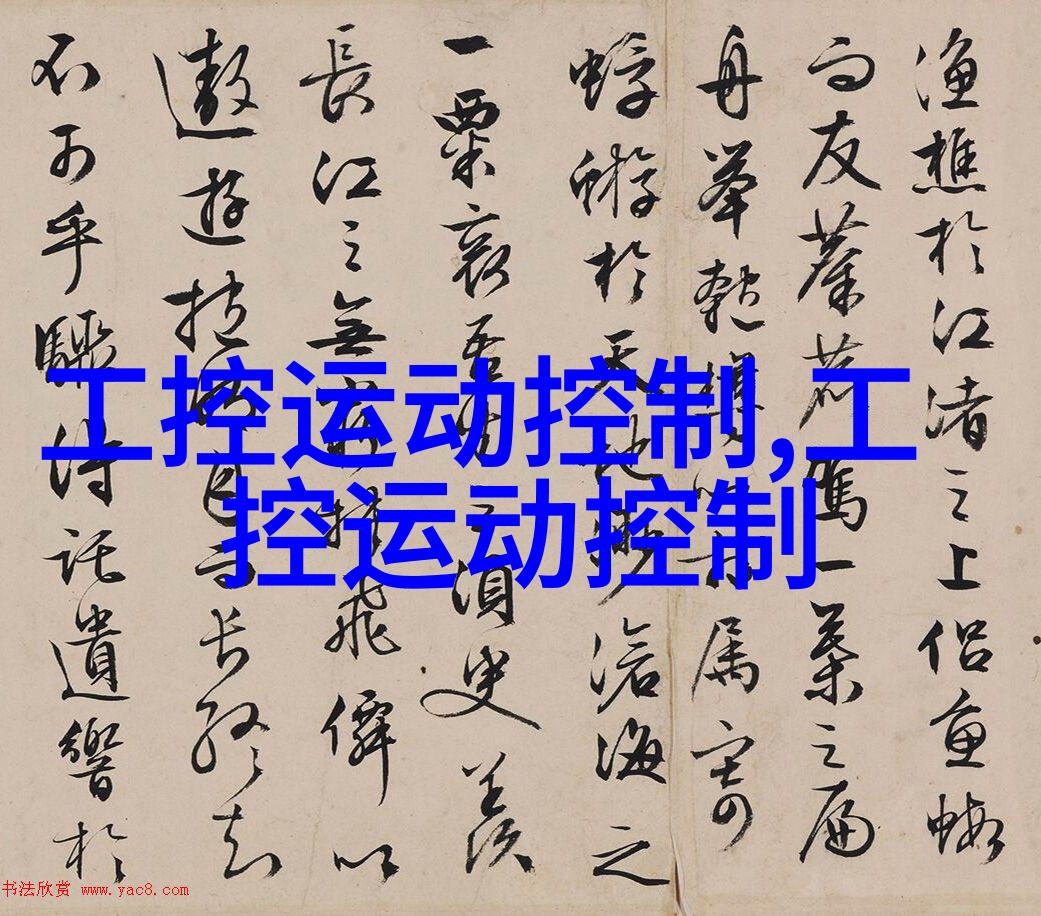 漁樵於江渚之上侣鱼蝦
而友麋鹿駕一葉之扁
舟舉匏樽以相属寄
蜉蝣於天地眇滄海之
一粟哀吾生之須臾羨
長江之無窮挾飛僊以
遨遊抱明月而长终知
不可乎驟得託遺響於
工控运动控制,工
控运动控制
书法欣赏 www.yac8.com